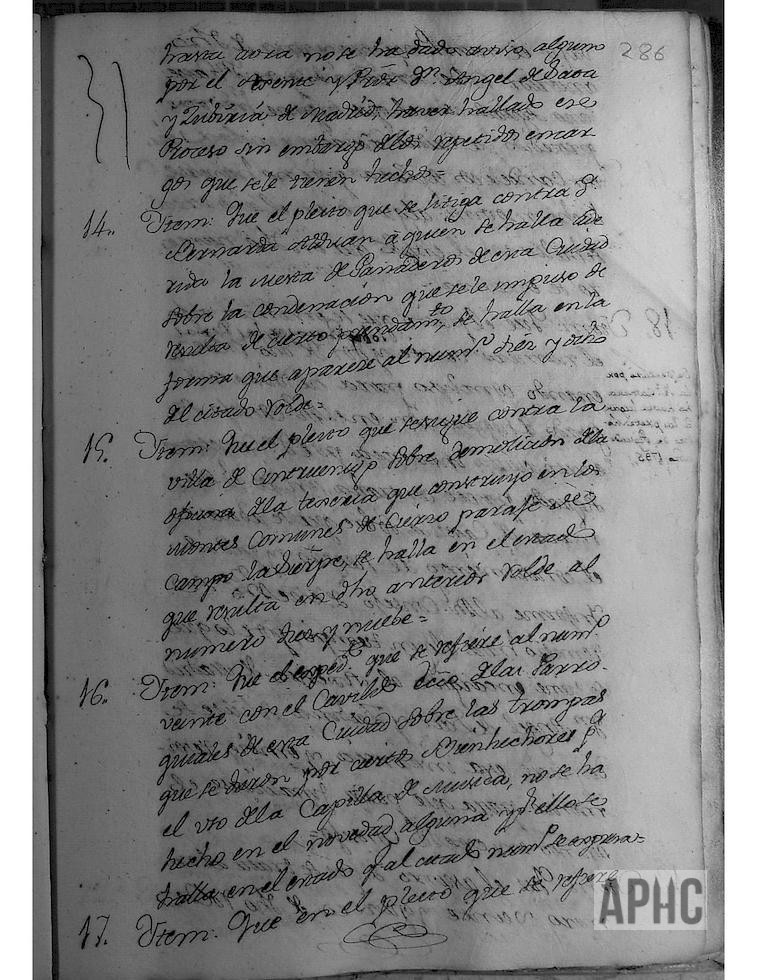 286
hasta aora no se ha dado aviso alguno
por el Agente y Pror Dn Angel de
y de Madrid, haver hallado ese
Proceso sin embargo de los repetidos encar
gos que se le tienen hechos=
14. Item: Que el pleito que se litiga contra Dn
Bernardo Alduan á quien se halla ade
rida la Mesta de Panaderos de esta Ciudad
sobre la condenación que se le impuso de
resulta de cierto prendamto, se halla en la
forma que aparece al numo diez y ocho
del citado rolde=
15. Item: Que el pleito que se sigue contra la
villa de Cintruenigo sobre demolicion de la
oficina de la teneria que construyó en los
montes comunes de Cierzo paraje de
Campo la Sierpe, se halla en el estado
que resulta en dho anterior rolde al
numero diez y nuebe=
16. Item: Que el expedte que se refiere al numo
veinte con el Cavildo ecco de las Parro-
quiales de esta Ciudad sobre las trompas
que se dieron por varios Bienhechores pa
el uso de la Capilla de Musica, no se ha
hecho en el novedad alguna y pr ello se
halla en el estado qe al citado numo se expresa=
17. Item: Que en el pleito que se refiere
APHC